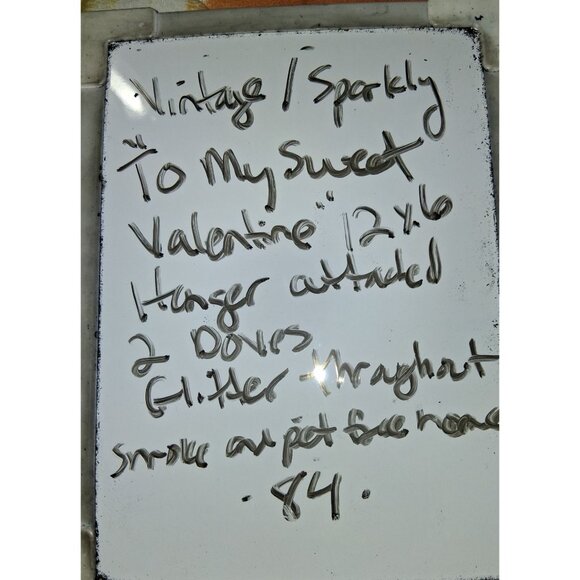 Vintage / Sparkly
"To My Sweet
Valentine" 12x6
Hanger attached
2 Doves
Glitter throughout
smoke and pet free home
. 84 .